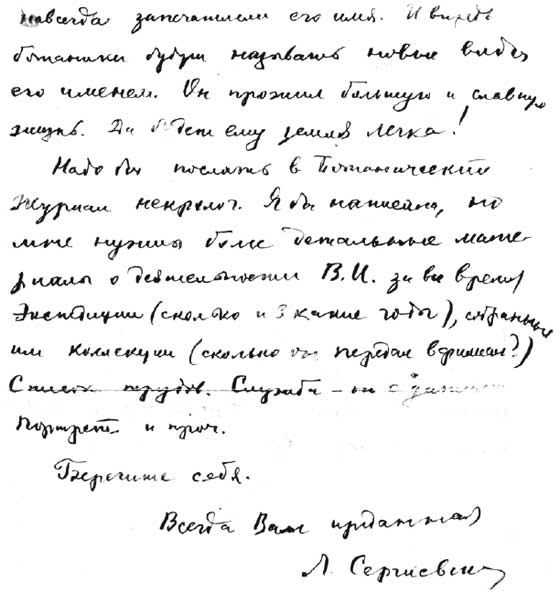 навсегда запечатлели его имя. И впредь
ботаники будут называть новые виды
его именем. Он прожил большую и славную
жизнь. Да будет ему земля легка!
Надо бы послать в Ботанический
Журнал некролог. Я бы написала, но
мне нужны более детальные мате-
риалы о деятельности В.И. за все время
Экспедиции (сколько и в какие годы), собранные
им коллекции (сколько он передал в филиал?)
Список трудов. Служба –
портрет и проч.
Берегите себя.
Всегда Вам преданная
Л. Сергиевская